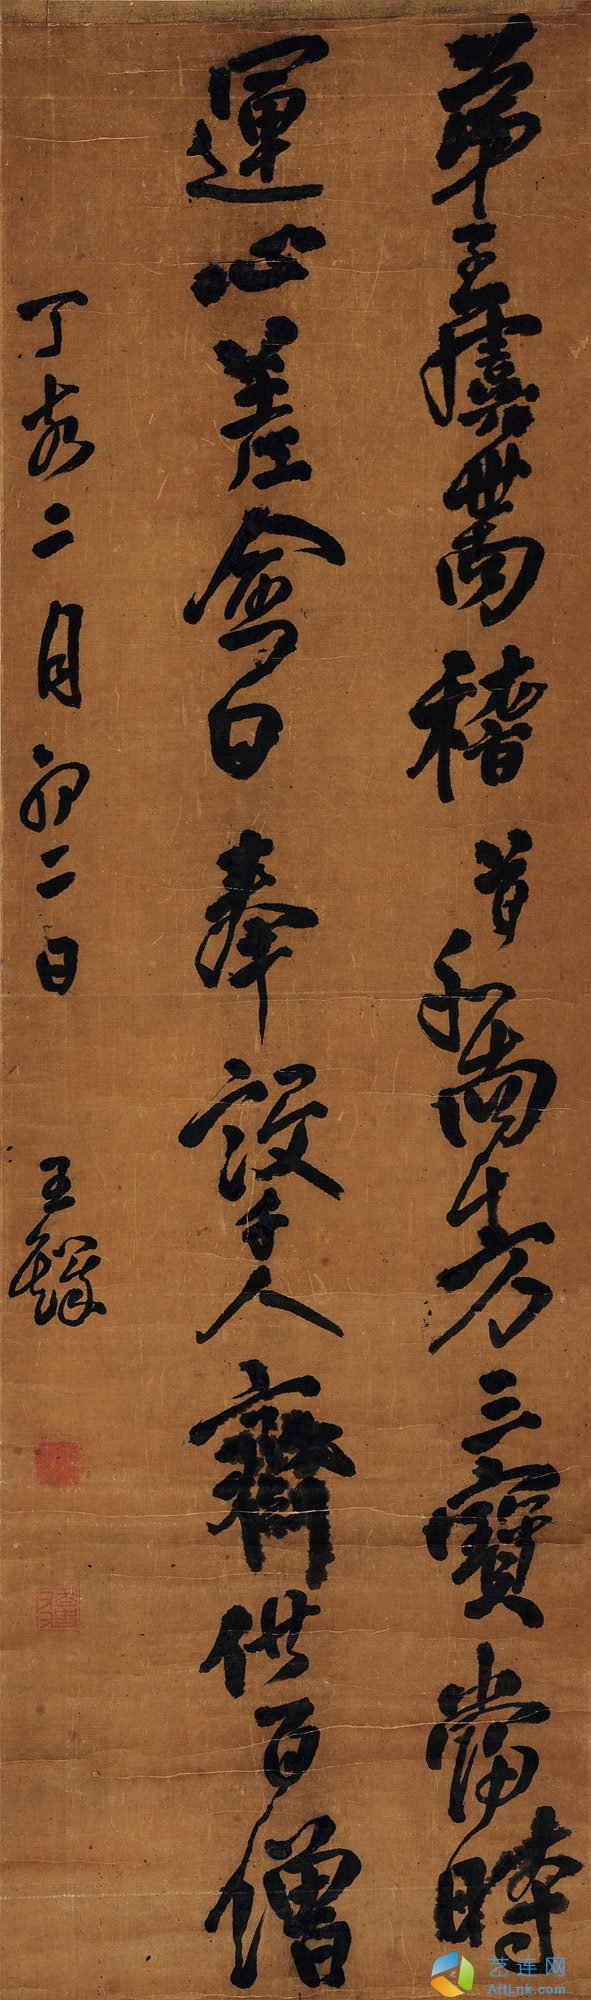 弟子虞世南稽首和南十方三寶當時
運心差愈日奉設千人齋供百僧
丁亥二月初二日 王鐸
艺连网
ArtLnk.com